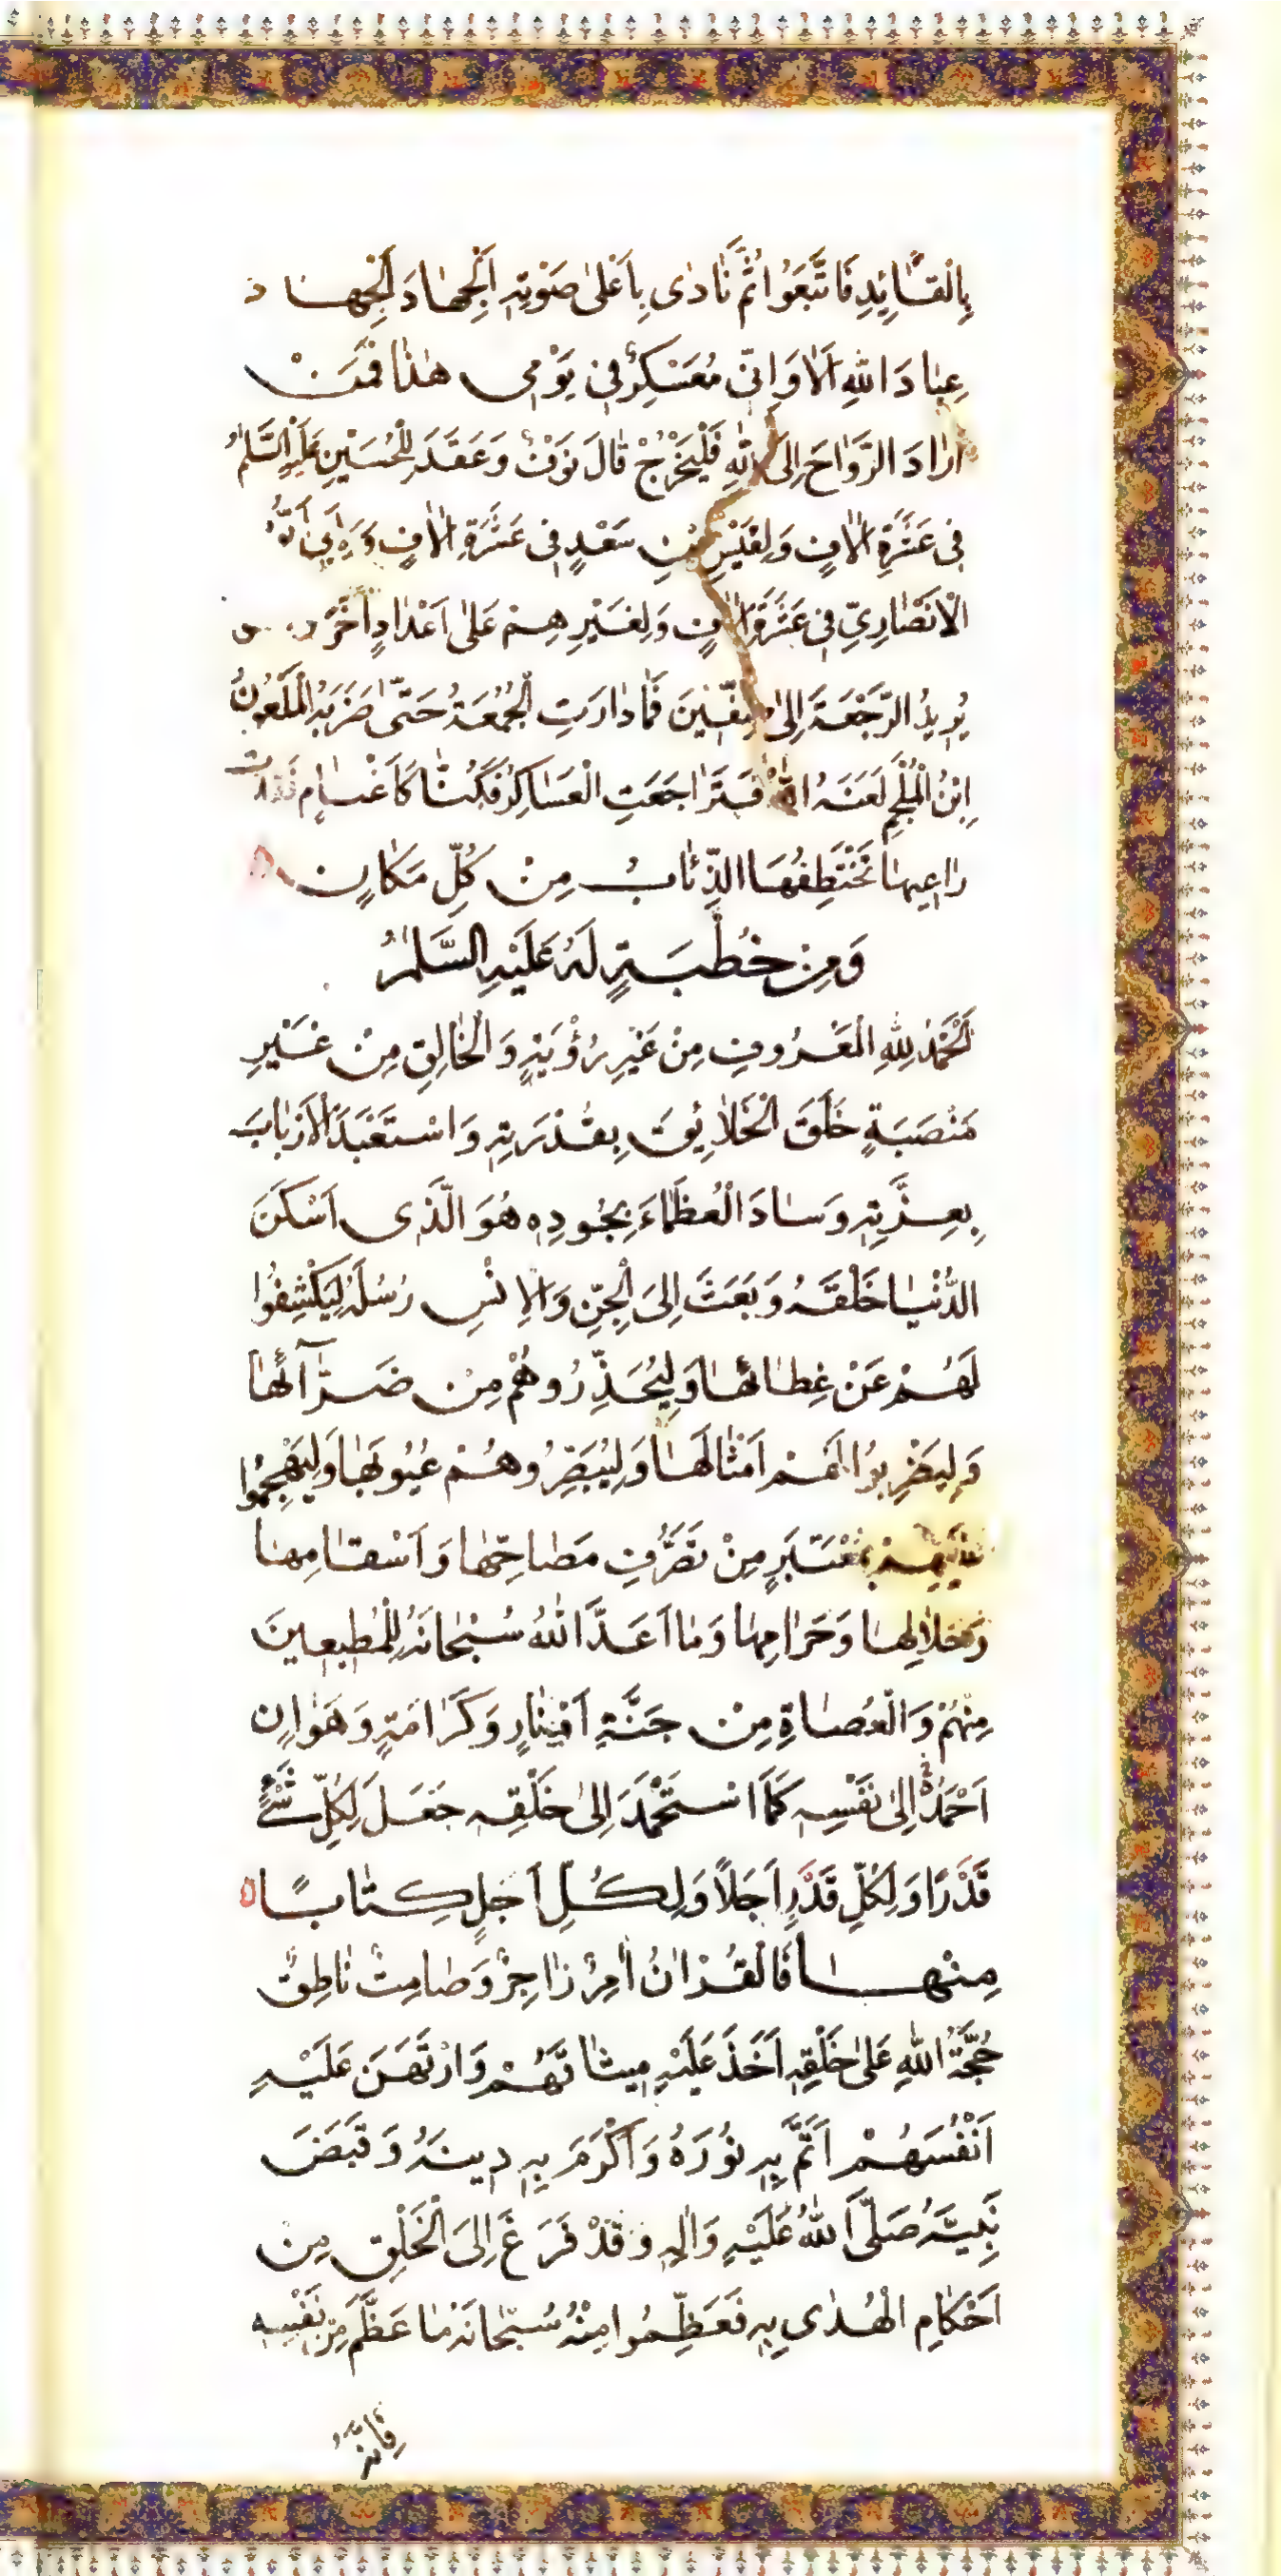 بِالْقٰائِدِ فَاتَّبَعُوا ثُمَّ نٰادٰى بِاَعْلىٰ صَوْتِهِ اَلْجِهٰادَ اَلْجِهٰادَ
عِبٰادَ اللّٰهِ اَلاٰ وَاِنّى مُعَسْكِرٌ فِى يَوْمِى هٰذٰا فَمَنْ
اَرٰادَ الرَّوٰاحَ اِلَى اللّٰهِ فَلْيَخْرُجْ قٰالَ نَوْفٌ وَعَقَدَ لِلْحُسَيْنِ عَلَيْهِ السَّلٰمُ
فِى عَشَرَةِ اٰلاٰفٍ وَلِقَيْسِ بْنِ سَعْدٍ فِى عَشَرَةِ اٰلاٰفٍ وَلِاَبِى اَيُّوبَ
الْاَنْصٰارِىِّ فِى عَشَرَةِ اٰلاٰفٍ وَلِغَيْرِهِمْ عَلىٰ اَعْدٰادٍ اُخَرَ
يُرِيدُ الرَّجْعَةَ اِلىٰ صِفِّينَ فَمٰا دٰارَتِ الْجُمُعَةُ حَتّىٰ ضَرَبَهُ الْمَلْعُونُ
اِبْنُ الْمُلْجَمِ لَعَنَهُ اللّٰهُ فَتَرٰاجَعَتِ الْعَسٰاكِرُ فَكُنّٰا كَاَغْنٰامٍ فَقَدَتْ
رٰاعِيهٰا تَخْتَطِفُهَا الذِّئٰابُ مِنْ كُلِّ مَكٰانٍ
وَمِنْ خُطْبَةٍ لَهُ عَلَيْهِ السَّلٰمُ
اَلْحَمْدُ لِلّٰهِ الْمَعْرُوفِ مِنْ غَيْرِ رُؤْيَةٍ وَالْخٰالِقِ مِنْ غَيْرِ
مَنْصَبَةٍ خَلَقَ الْخَلاٰئِقَ بِقُدْرَتِهِ وَاسْتَعْبَدَ الْاَرْبٰابَ
بِعِزَّتِهِ وَسٰادَ الْعُظَمٰاءَ بِجُودِهِ هُوَ الَّذِى اَسْكَنَ
الدُّنْيٰا خَلْقَهُ وَبَعَثَ اِلَى الْجِنِّ وَالْاِنْسِ رُسُلَهُ لِيَكْشِفُوا
لَهُمْ عَنْ غِطٰائِهٰا وَلِيُحَذِّرُوهُمْ مِنْ ضَرّٰآئِهٰا
وَلِيَضْرِبُوا لَهُمْ اَمْثٰالَهٰا وَلِيُبَصِّرُوهُمْ عُيُوبَهٰا وَلِيَهْجِمُوا
عَلَيْهِمْ بِمُعْتَبَرٍ مِنْ تَصَرُّفِ مَصٰاحِّهٰا وَاَسْقٰامِهٰا
وَحَلاٰلِهٰا وَحَرٰامِهٰا وَمٰا اَعَدَّ اللّٰهُ سُبْحٰانَهُ لِلْمُطِيعِينَ
مِنْهُمْ وَالْعُصٰاةِ مِنْ جَنَّةٍ اَوْ نٰارٍ وَكَرٰامَةٍ وَهَوٰانٍ
اَحْمَدُهُ اِلىٰ نَفْسِهِ كَمَا اسْتَحْمَدَ اِلىٰ خَلْقِهِ جَعَلَ لِكُلِّ شَىْءٍ
قَدْرًا وَلِكُلِّ قَدْرٍ اَجَلاً وَلِكُلِّ اَجَلٍ كِتٰابًا
مِنْهٰا فَالْقُرْاٰنُ اٰمِرٌ زٰاجِرٌ وَصٰامِتٌ نٰاطِقٌ
حُجَّةُ اللّٰهِ عَلىٰ خَلْقِهِ اَخَذَ عَلَيْهِ مِيثٰاقَهُمْ وَارْتَهَنَ عَلَيْهِ
اَنْفُسَهُمْ اَتَمَّ بِهِ نُورَهُ وَاَكْرَمَ بِهِ دِينَهُ وَقَبَضَ
نَبِيَّهُ صَلَّى اللّٰهُ عَلَيْهِ وَاٰلِهِ وَقَدْ فَرَغَ اِلَى الْخَلْقِ مِنْ
اَحْكٰامِ الْهُدٰى بِهِ فَعَظِّمُوا مِنْهُ سُبْحٰانَهُ مٰا عَظَّمَ مِنْ نَفْسِهِ
فَاِنَّهُ